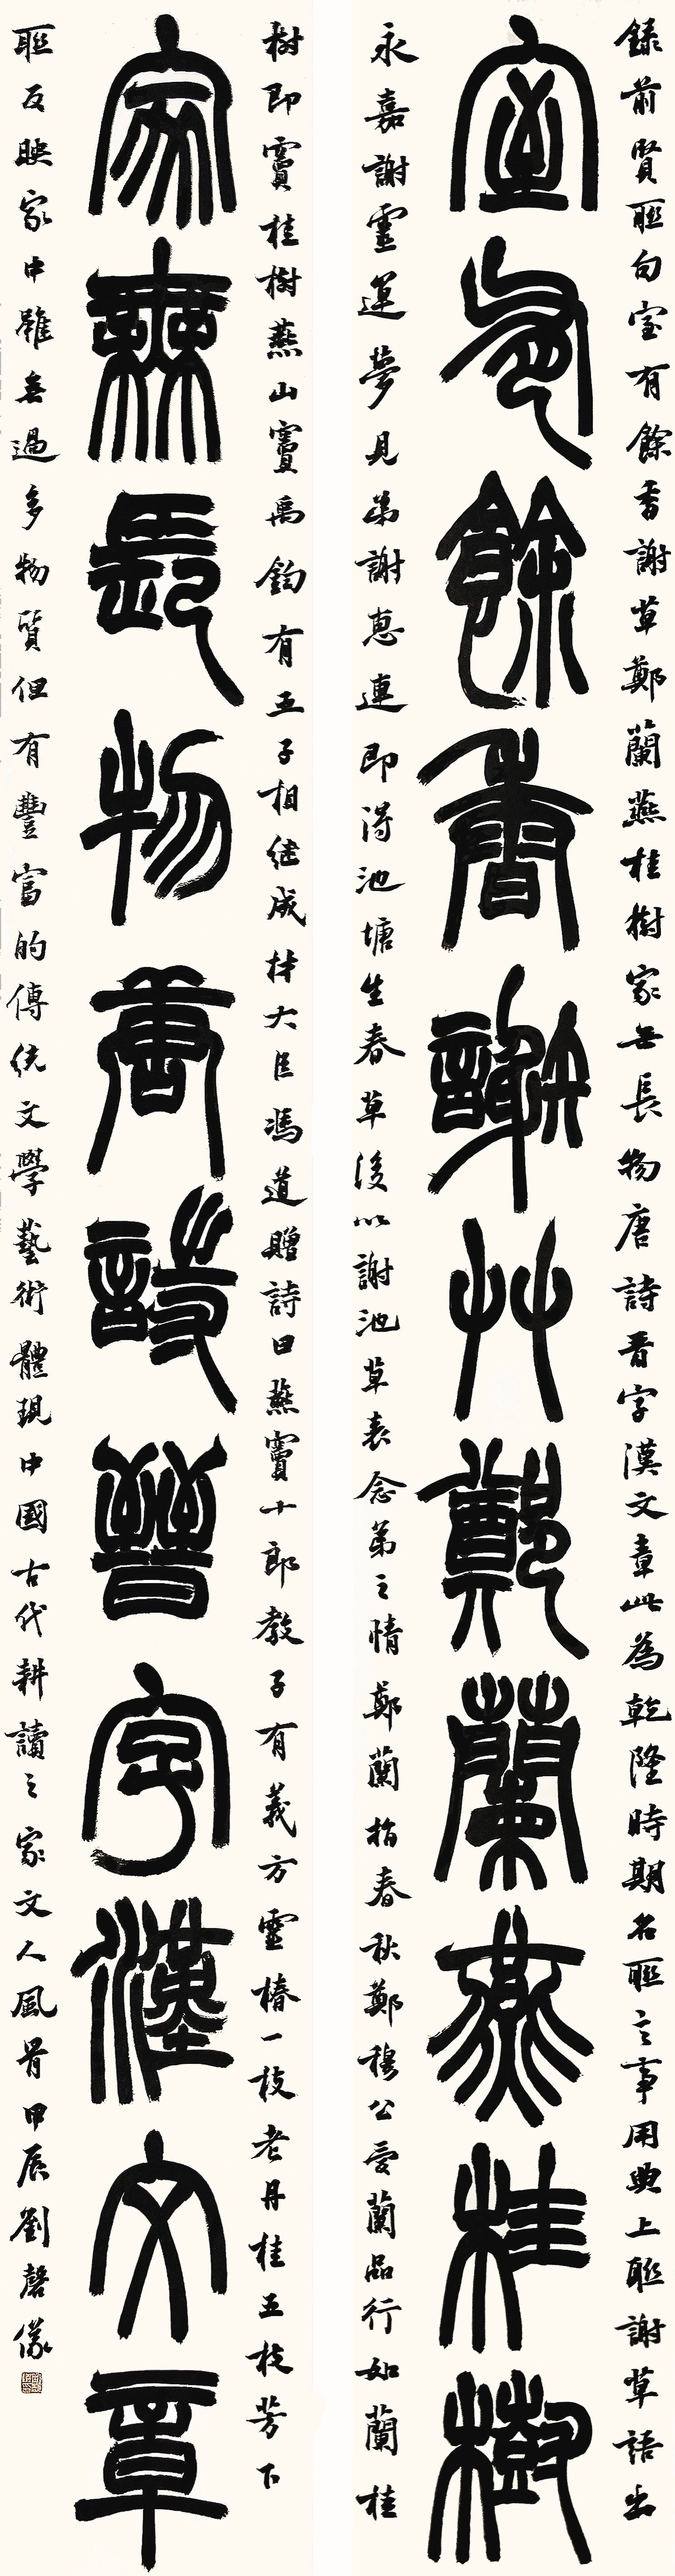 錄前賢聯句室有餘香謝草鄭蘭燕桂樹家无長物唐詩晉字漢文章此為乾隆時期名聯言事用典上聯謝草語出
室有餘香謝艸鄭蘭燕桂樹
永嘉謝靈運夢見弟謝惠連即得池塘生春草後以謝池草表念弟之情鄭蘭指春秋鄭穆公愛蘭品行如蘭桂
樹即竇桂樹燕山竇禹鈞有五子相繼成材大臣馮道贈詩曰燕竇十郎教子有義方靈椿一枝老丹桂五枝芳下
家無長物唐詩晉字漢文章
聯反映家中雖無過多物質但有豐富的傳統文學藝術體現中國古代耕讀之家文人風骨甲辰劉磬儀